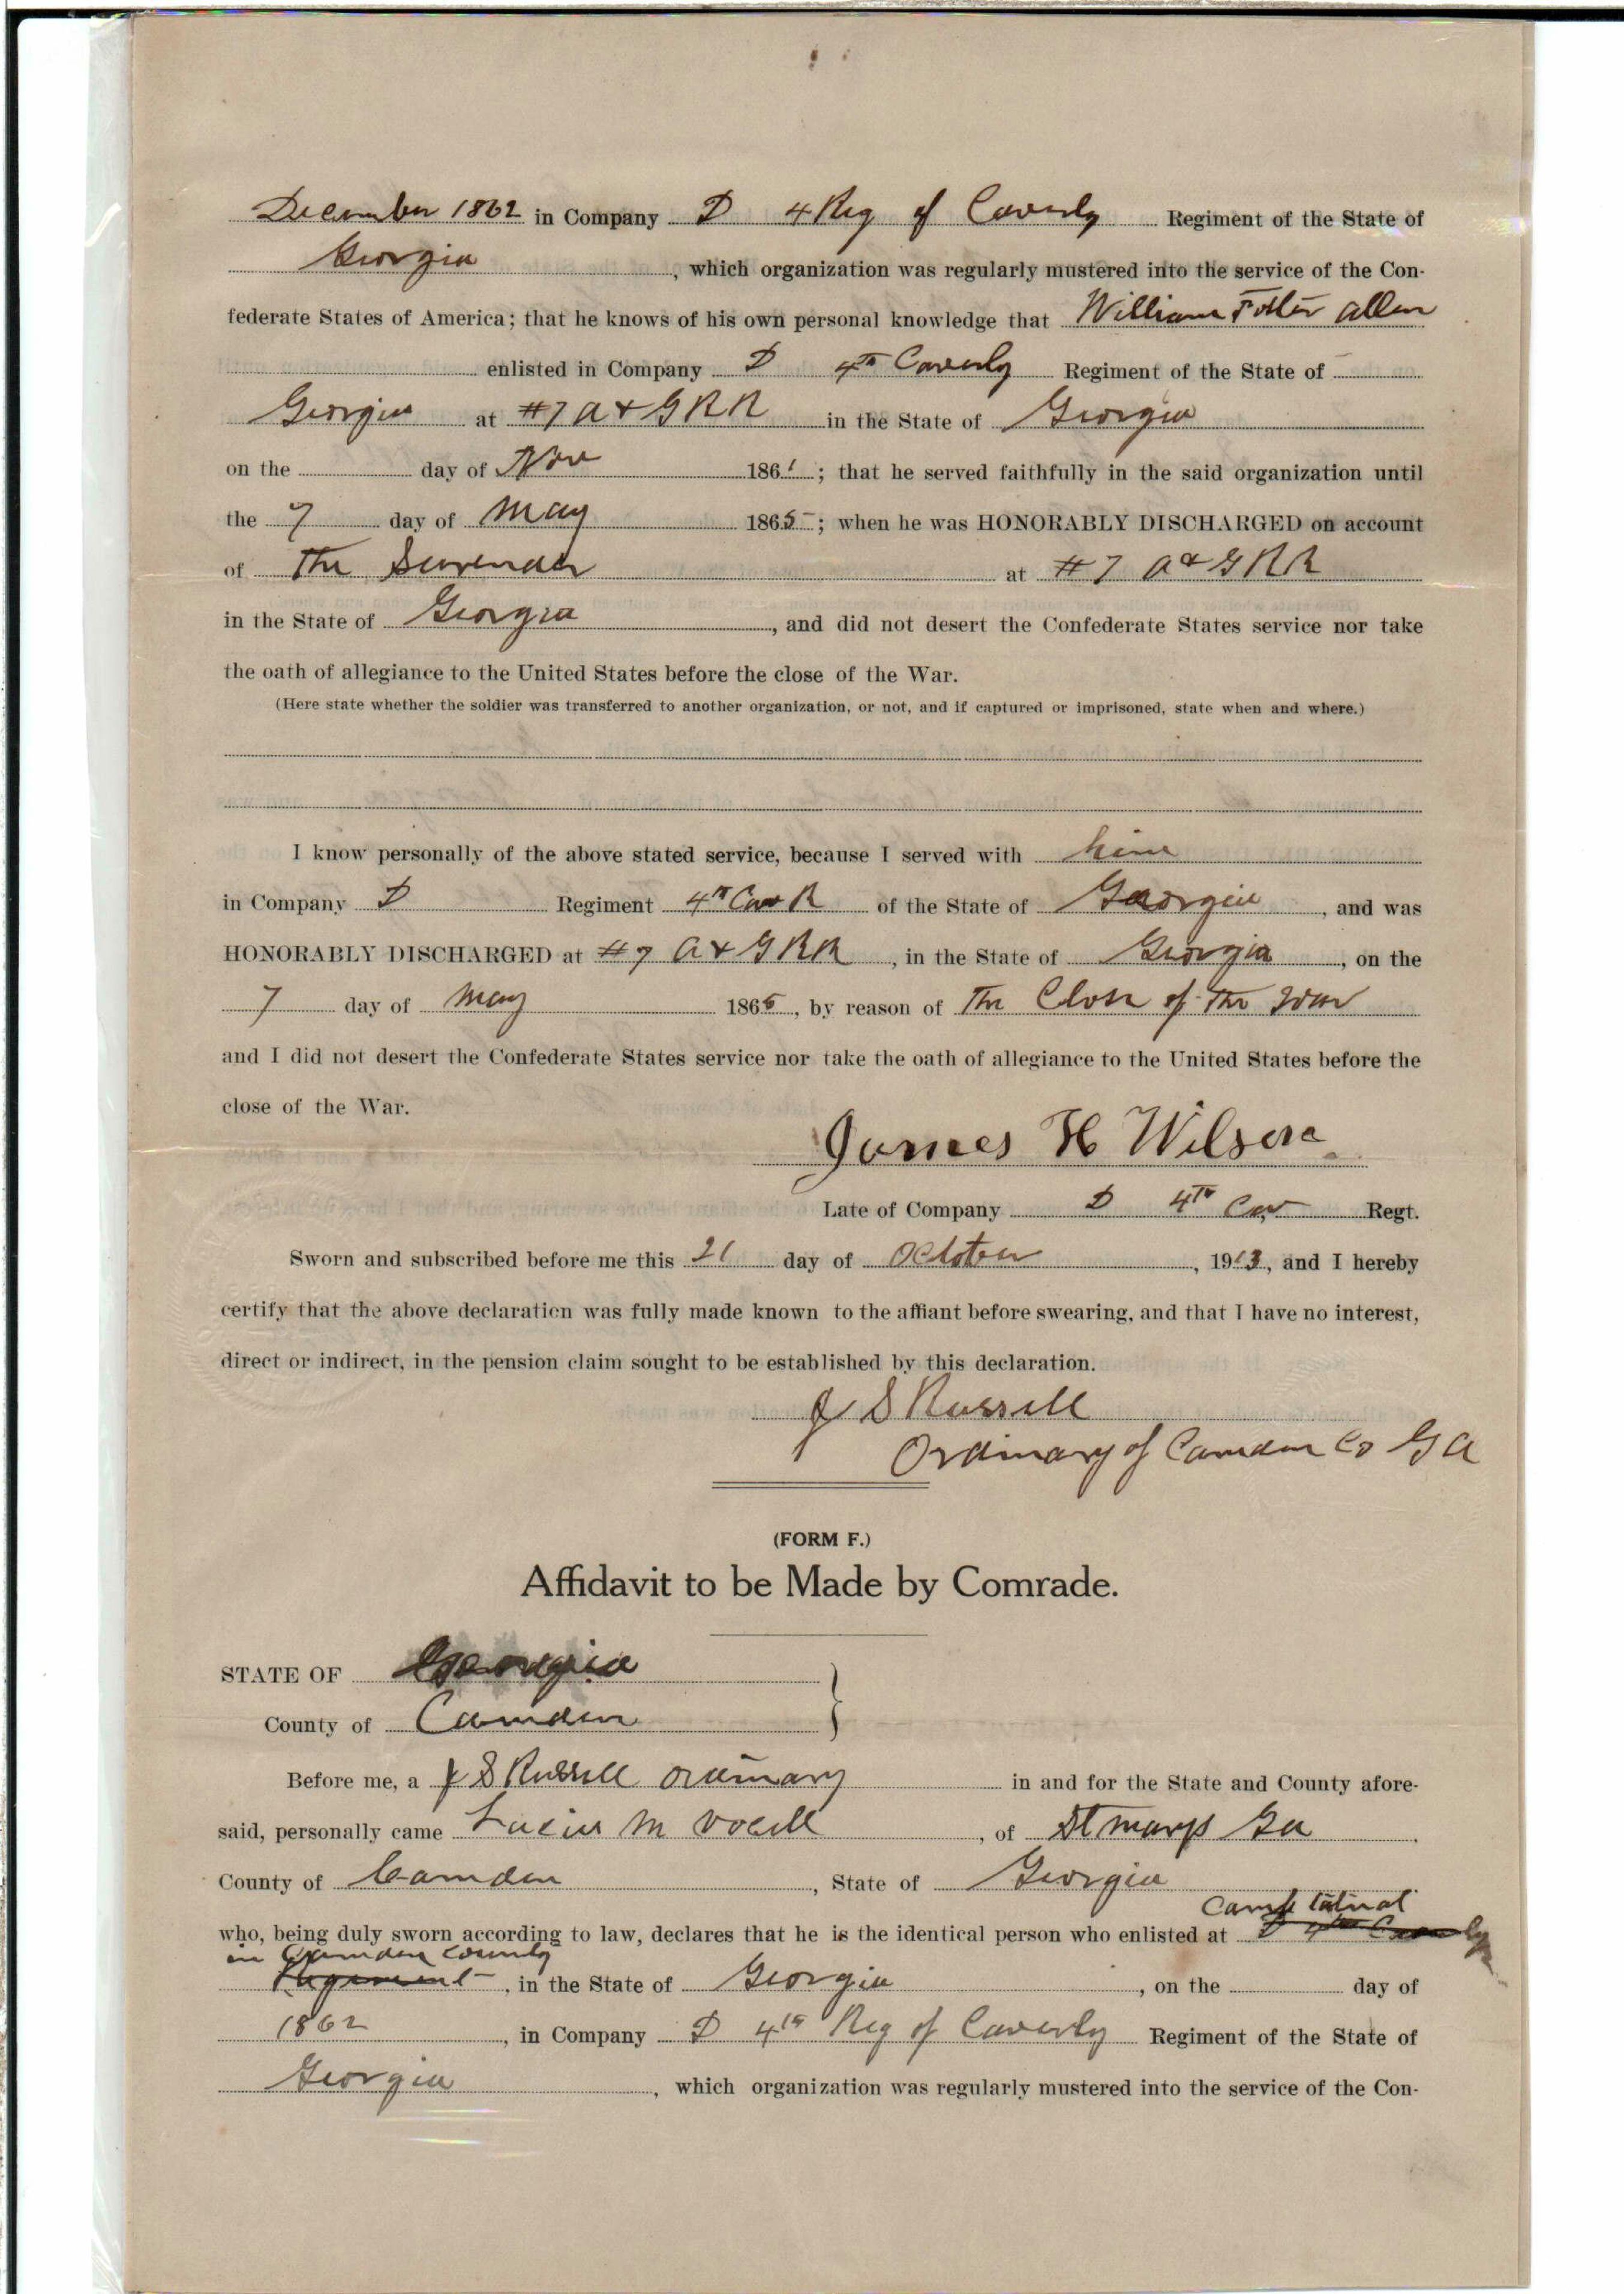 December 1862 in Company D 4 Reg of Caverly Regiment of the State of
Georgia, which organization was regularly mustered into the service of the Con-
federate States of America; that he knows of his own personal knowledge that William Foster Allen
enlisted in Company D 4th Caverly Regiment of the State of
Georgia at #7 A & G R R in the State of Georgia
on the day of Nov 1861; that he served faithfully in the said organization until
the 7 day of May 1865; when he was HONORABLY DISCHARGED on account
of The Surender at #7 A & G R R
in the State of Georgia, and did not desert the Confederate States service nor take
the oath of allegiance to the United States before the close of the War.
(Here state whether the soldier was transferred to another organization, or not, and if captured or imprisoned, state when and where.)
I know personally of the above stated service, because I served with him
in Company D Regiment 4th Cav R of the State of Georgia, and was
HONORABLY DISCHARGED at #7 A & G R R, in the State of Georgia, on the
7 day of May 1865, by reason of The Close of The War
and I did not desert the Confederate States service nor take the oath of allegiance to the United States before the
close of the War.
James H Wilson
Late of Company D 4th Cav Regt.
Sworn and subscribed before me this 21 day of October, 1913, and I hereby
certify that the above declaration was fully made known to the affiant before swearing, and that I have no interest,
direct or indirect, in the pension claim sought to be established by this declaration.
J S Russell
Ordinary of Camden Co GA
(FORM F.)
Affidavit to be Made by Comrade.
STATE OF Georgia
County of Camden
Before me, a J S Russell Ordinary in and for the State and County afore-
said, personally came M, of St Marys Ga
County of Camden, State of Georgia
Camp
who, being duly sworn according to law, declares that he is the identical person who enlisted at D 4th
in Camden County
Regement, in the State of Georgia, on the day of
1862, in Company D 4th Reg of Caverly Regiment of the State of
Georgia, which organization was regularly mustered into the service of the Con-